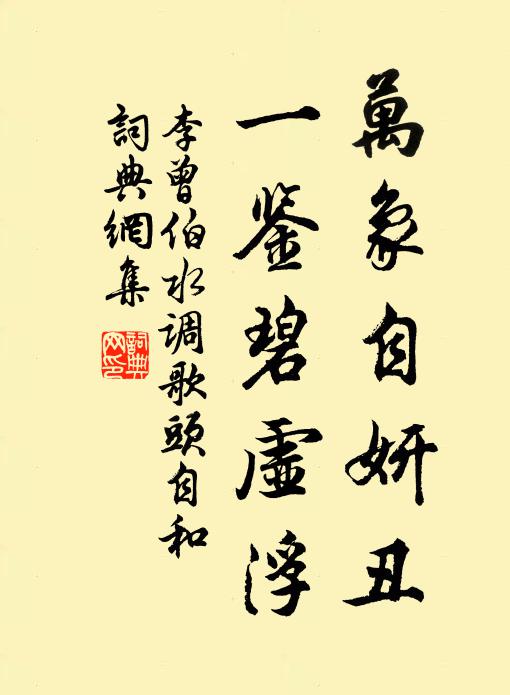 萬象自妍丑
一鉴碧虛浮
李曾伯水调歌頭自和
詞典網集
詞典网印